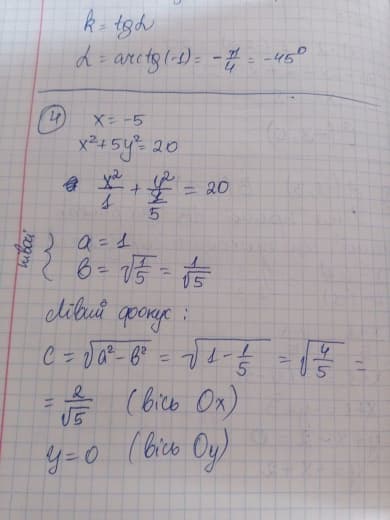 k = tg α
α = arctg(-1) = -π/4 = -45°
4
x = -5
x² + 5y² = 20
x²/1 + y²/(1/5) = 20
півосі
a = 1
b = √(1/5) = 1/√5
Лівий фокус:
c = √(a² - b²) = √(1 - 1/5) = √(4/5) =
= 2/√5 (вісь Ox)
y = 0 (вісь Oy)